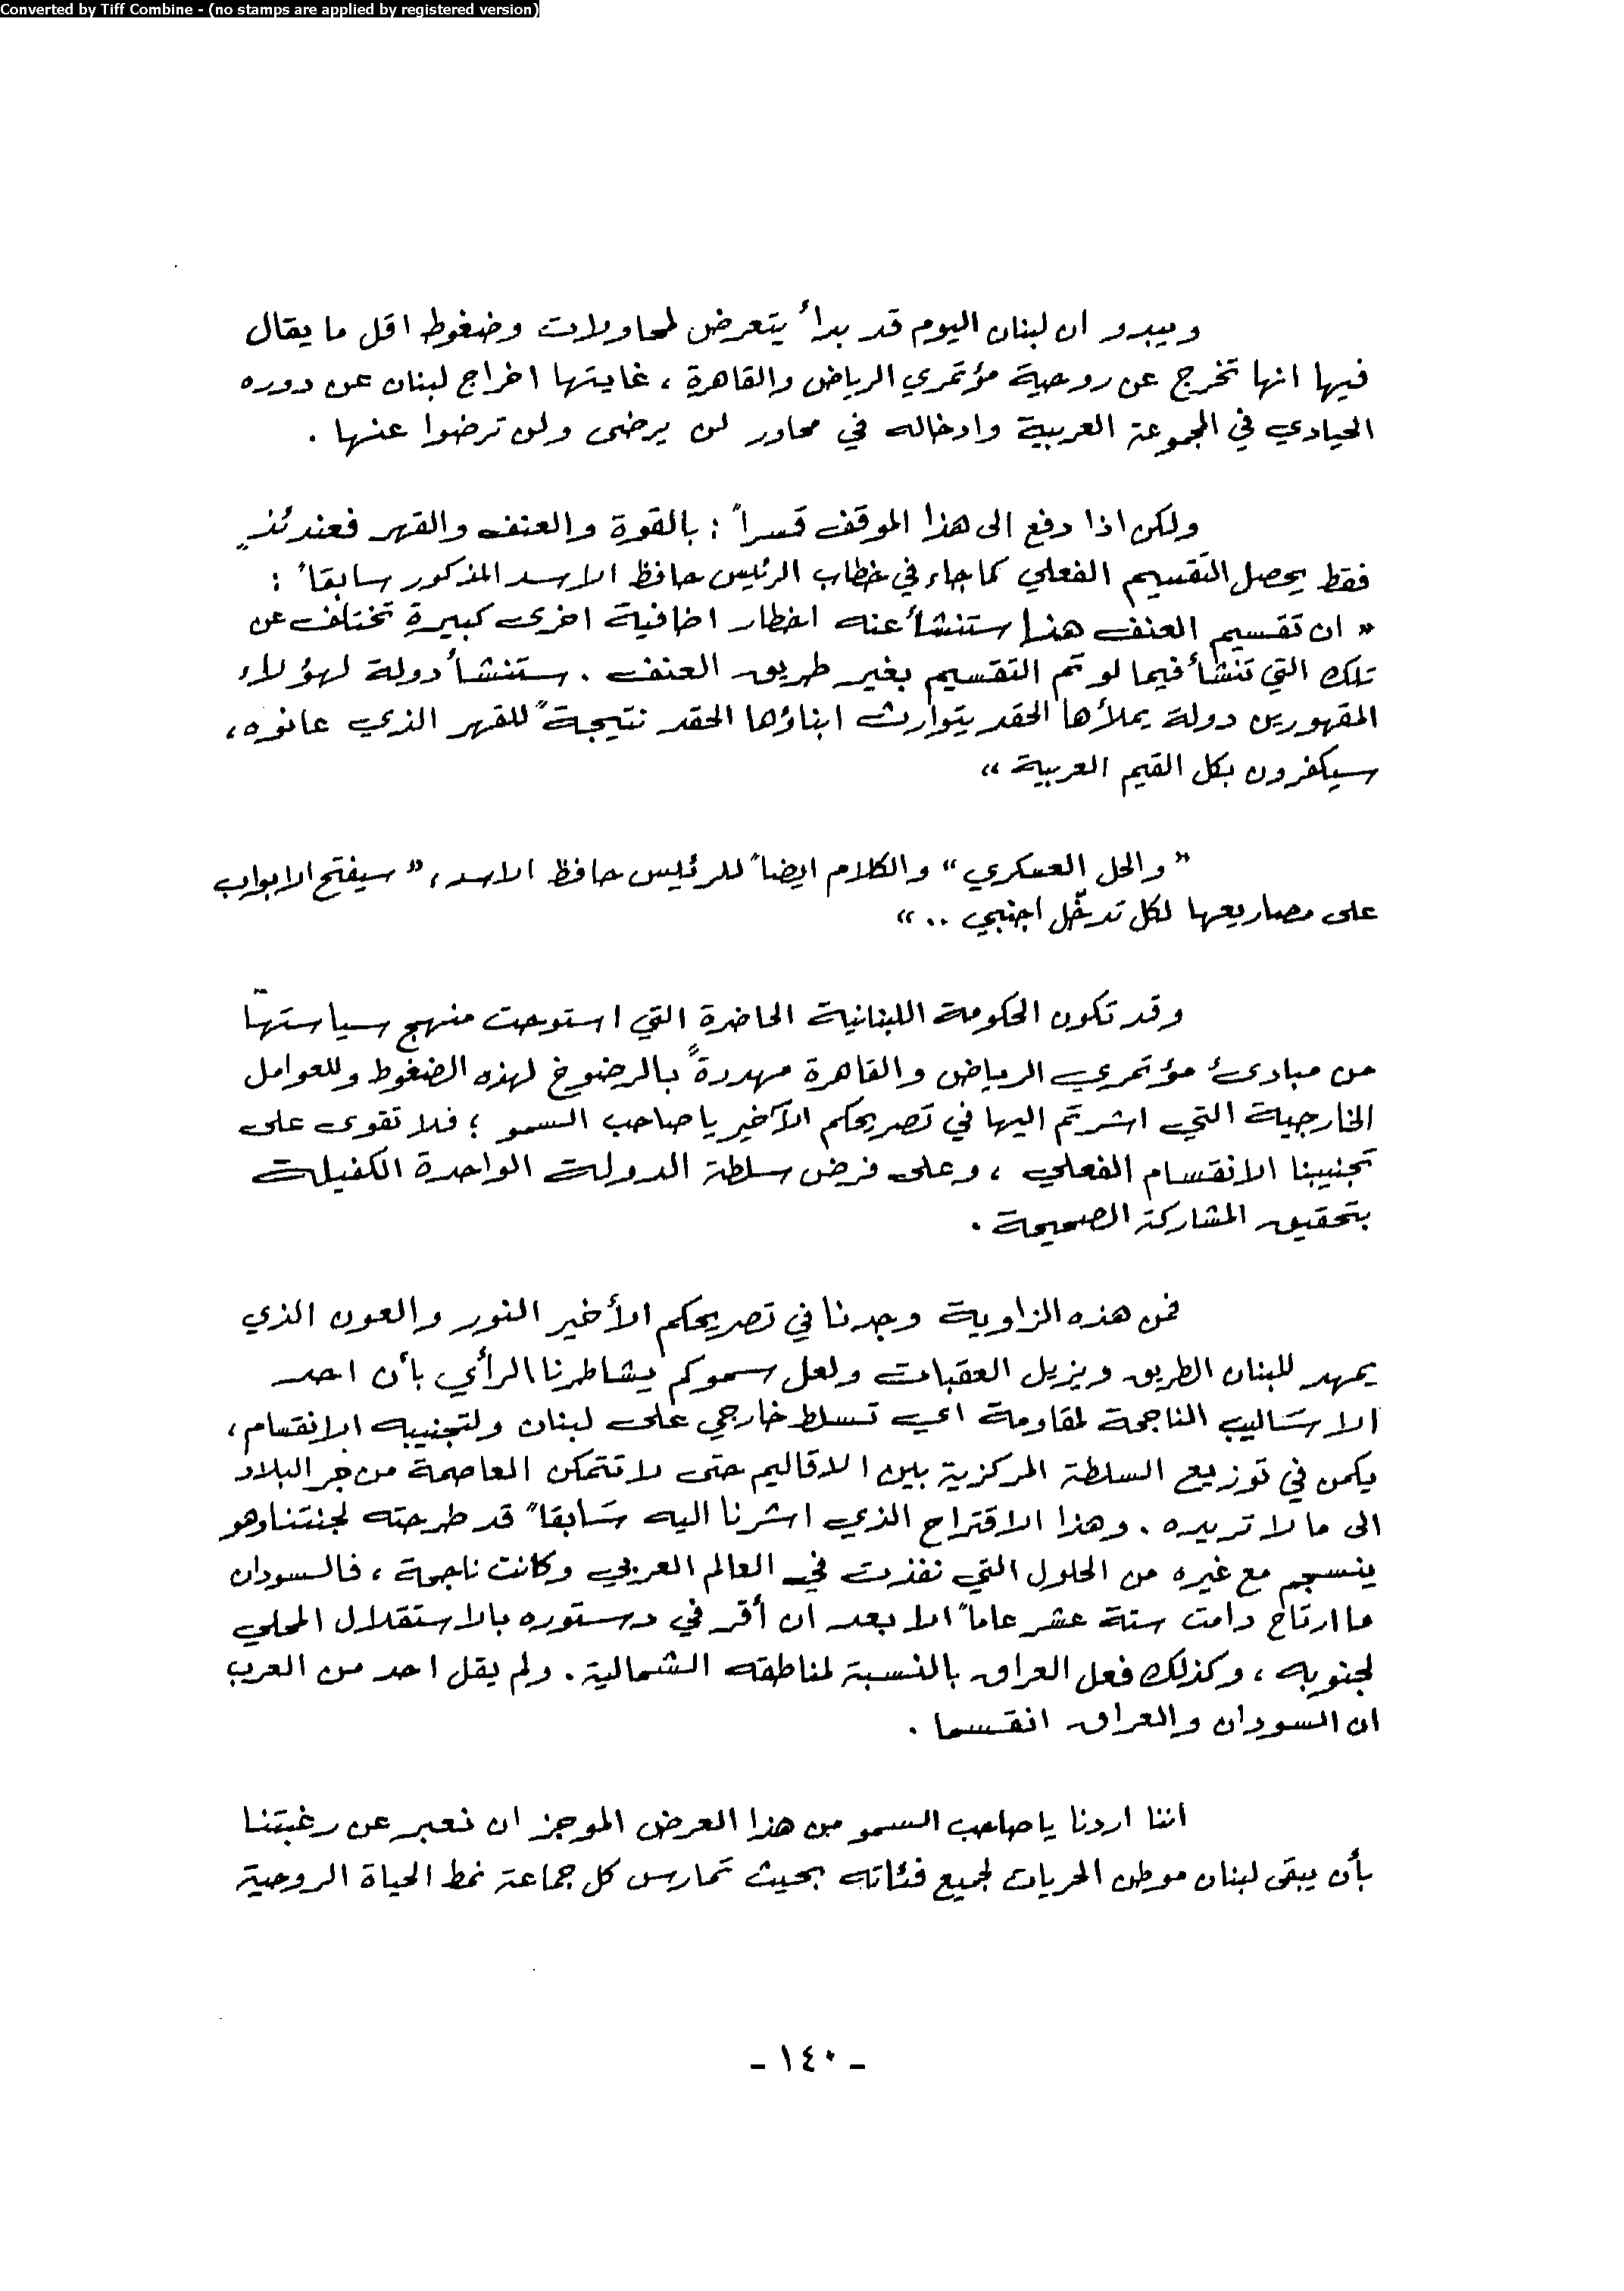 Converted by Tiff Combine - (no stamps are applied by registered version)
ويبدو ان لبنان اليوم قد بدأ يتعرض لمحاولات وضغوط اقل ما يقال
فيها انها تخرج عن روحية مؤتمري الرياض والقاهرة ، غايتها اخراج لبنان عن دوره
الحيادي في المجموعة العربية وادخاله في محاور لن يرضى ولن ترضوا عنها .
ولكن اذا دفع الى هذا الموقف قسراً : بالقوة والعنف والقهر فعندئذٍ
فقط يحصل التقسيم الفعلي كما جاء في خطاب الرئيس حافظ الاسد المذكور سابقاً :
« ان تقسيم العنف هذا ستنشأ عنه اخطار اضافية اخرى كبيرة تختلف عن
تلك التي تنشأ فيما لو تم التقسيم بغير طريق العنف . ستنشأ دولة لهؤلاء
المقهورين دولة يملأها الحقد يتوارث ابناؤها الحقد نتيجةً للقهر الذي عانوه ،
سيكفرون بكل القيم العربية »
« والحل العسكري » والكلام ايضاً للرئيس حافظ الاسد ، « سيفتح الابواب
على مصاريعها لكل تدخّل اجنبي .. »
وقد تكون الحكومة اللبنانية الحاضرة التي استوحت منهج سياستها
من مبادئ مؤتمري الرياض والقاهرة مهددةً بالرضوخ لهذه الضغوط وللعوامل
الخارجية التي اشرتم اليها في تصريحكم الأخير يا صاحب السمو ؛ فلا تقوى على
تجنيبنا الانقسام الفعلي ، وعلى فرض سلطة الدولة الواحدة الكفيلة
بتحقيق المشاركة الصحيحة .
فمن هذه الزاوية وجدنا في تصريحكم الأخير النور والعون الذي
يمهد للبنان الطريق ويزيل العقبات ولعل سموكم يشاطرنا الرأي بأن احد
الاساليب الناجحة لمقاومة اي تسلط خارجي على لبنان ولتجنيبه الانقسام ،
يكمن في توزيع السلطة المركزية بين الاقاليم حتى لا تتمكن العاصمة من جر البلاد
الى ما لا تريده . وهذا الاقتراح الذي اشرنا اليه سابقاً قد طرحته لجنتنا وهو
ينسجم مع غيره من الحلول التي نفذت في العالم العربي وكانت ناجحة ، فالسودان
ما ارتاح دامت ستة عشر عاماً الا بعد ان أقر في دستوره بالاستقلال المحلي
لجنوبه ، وكذلك فعل العراق بالنسبة لمناطقه الشمالية . ولم يقل احد من العرب
ان السودان والعراق انقسما .
اننا اردنا يا صاحب السمو من هذا العرض الموجز ان نعبر عن رغبتنا
بأن يبقى لبنان موطن الحريات لجميع فئاته بحيث تمارس كل جماعة نمط الحياة الروحية
- ١٤٠ -